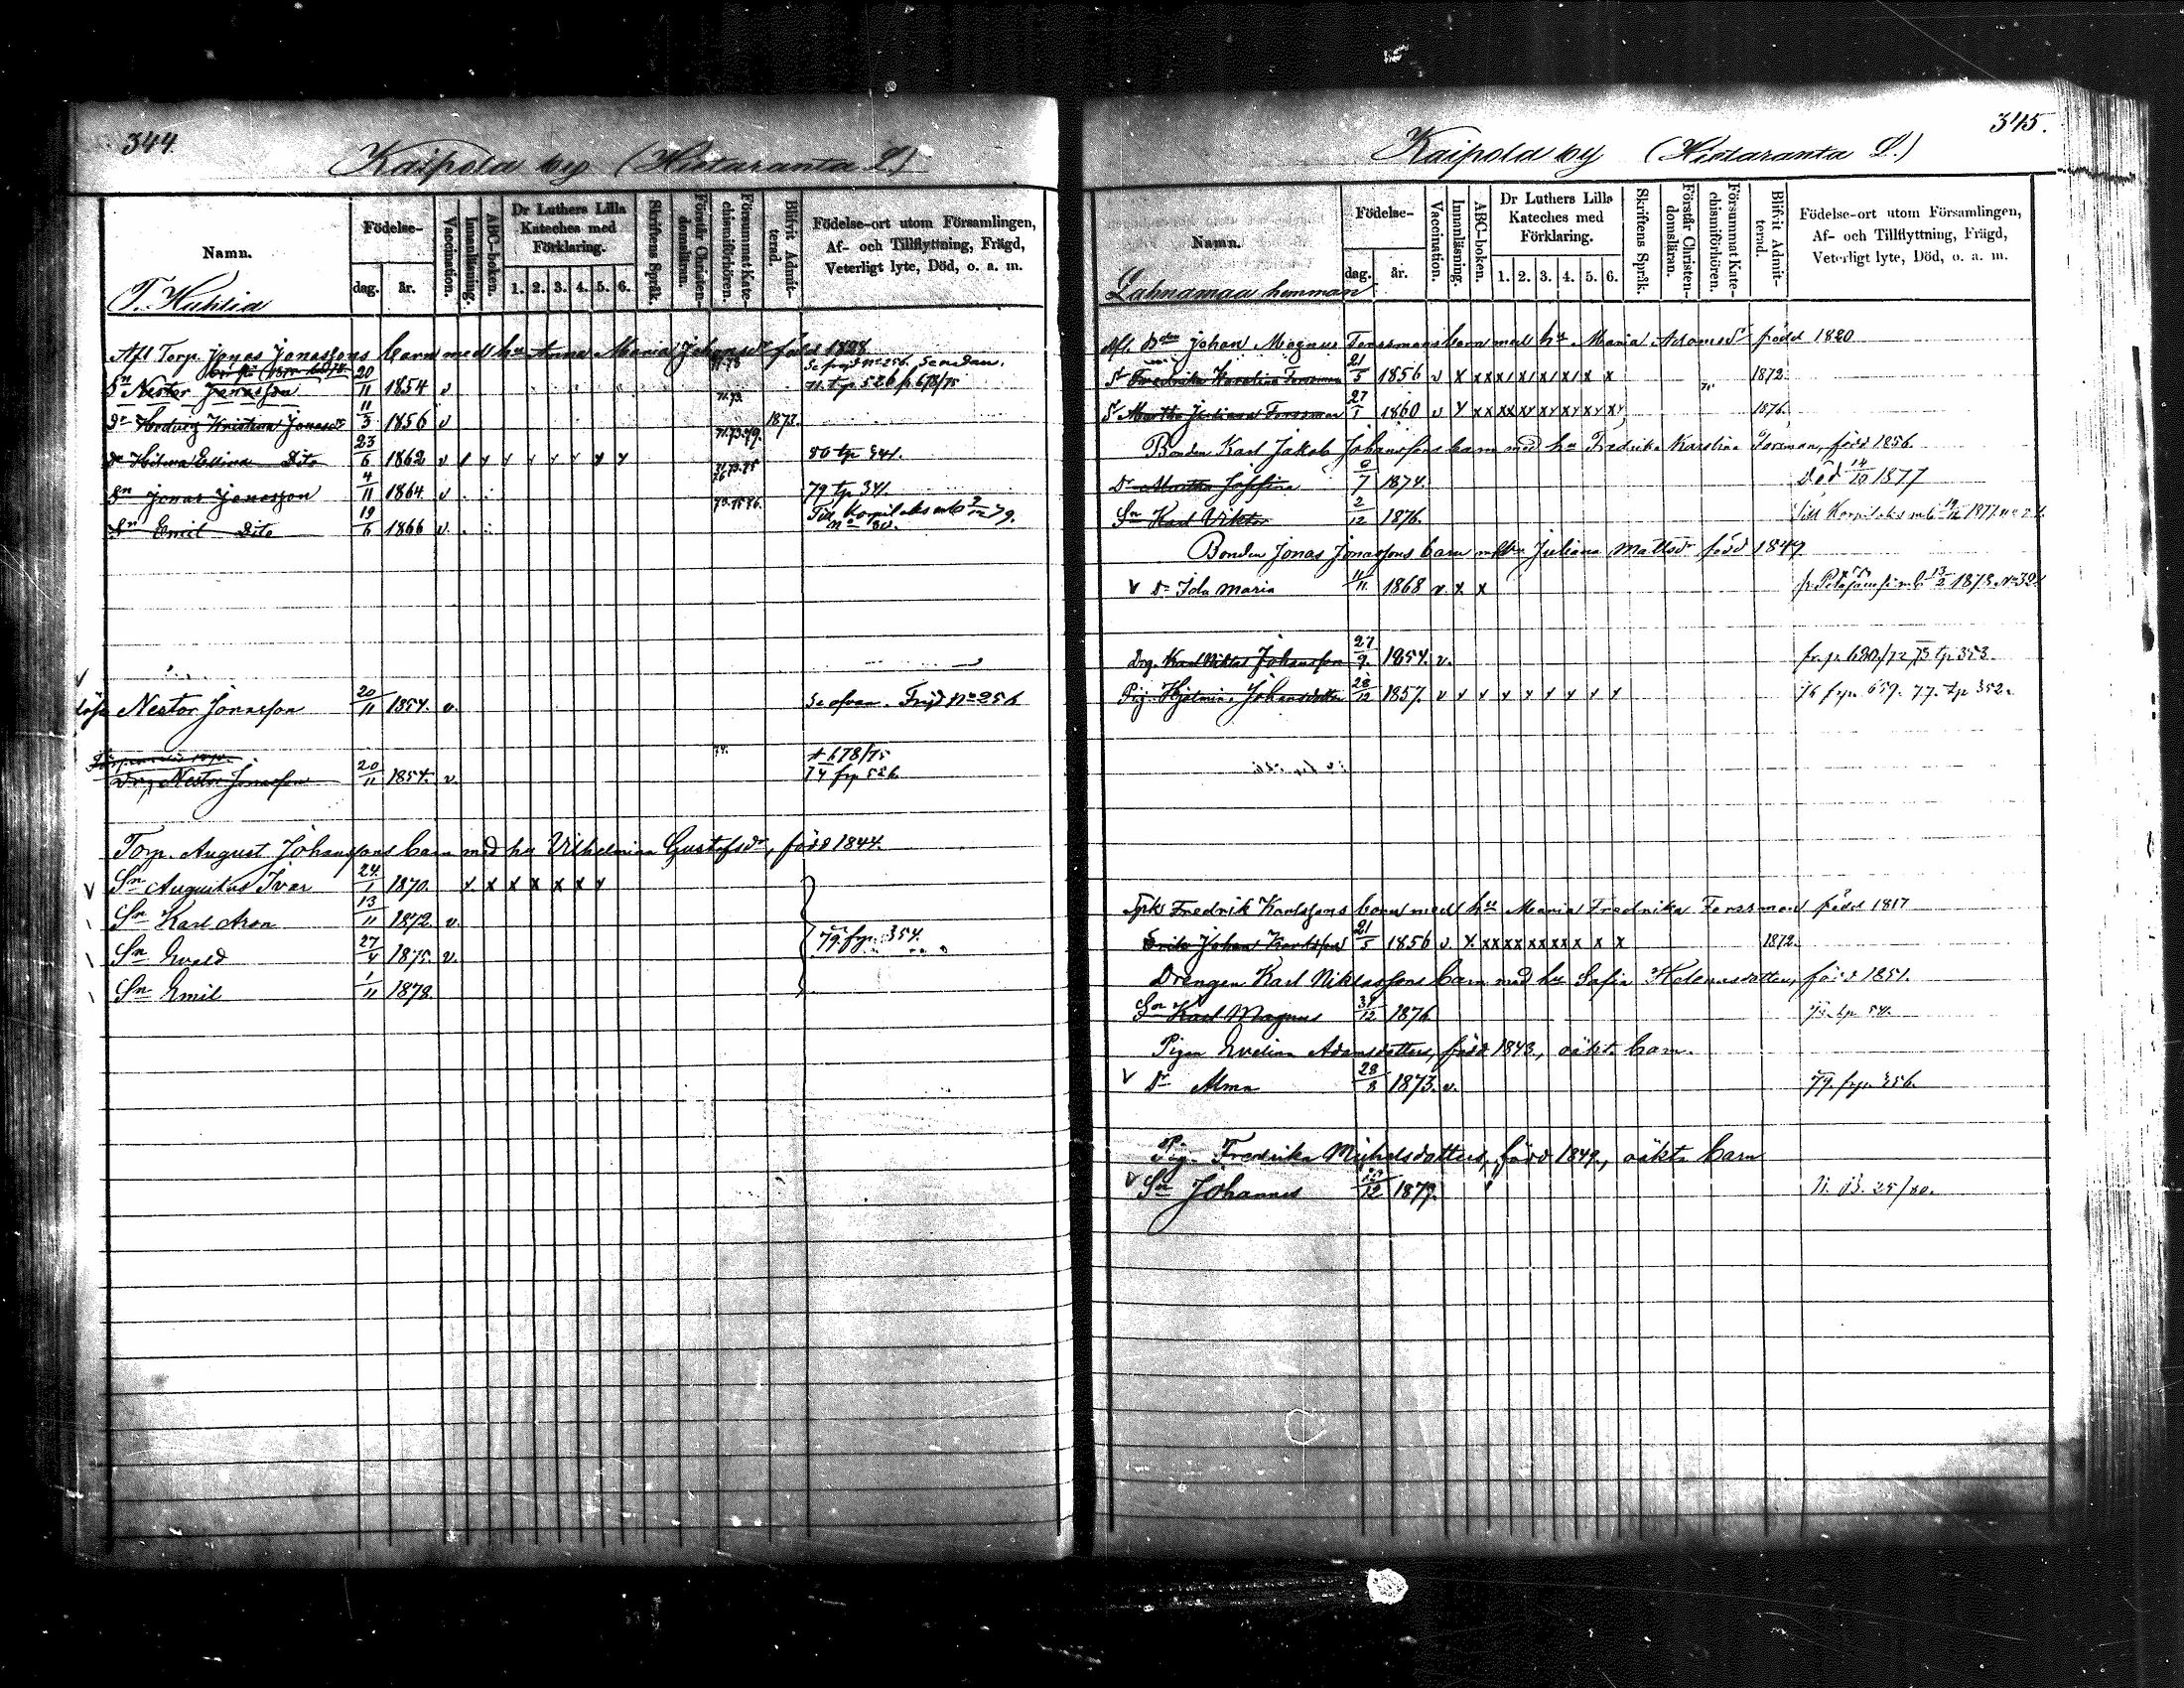 344.
Kaipola by (Hietaranta L.)
Namn.
Födelse-
dag. år.
Vaccination.
Innanläsning.
ABC-boken.
Dr Luthers Lilla Kateches med Förklaring.
1. 2. 3. 4. 5. 6.
Skriftens Språk.
Förstår Christendomsläran.
Försummat Katechismiförhören.
Blifvit Admitterad.
Födelse-ort utom Församlingen,
Af- och Tillflyttning, Frägd,
Veterligt lyte, Död, o. a. m.
T. Huhtia
Afl Torp. Jonas Jonassons barn med hu Anna Maria Johansdr född 1828
Sn Nestor Jonasson 20/11 1854 v 71 tp 526 fr 678/75
Dr Hedvig Kristina Jonasdr 11/3 1856 v 1873.
Dr Hilma Elina Dito 23/6 1862 v x x x x x x x x 71.73.79. 80 tp 341.
Sn Jonas Jonasson 4/11 1864 v 79 tp 341.
Sn Emil Dito 19/6 1866 v Till Korpilaks mb 9/12 79. No 30.
Nestor Jonasson 20/11 1854. v Se ofvan. Frejd No 256
Drg. Nestor Jonasson 20/11 1854. v. 74. t 678/75
74 frp 526
Torp. August Johanssons barn med hu Vilhelmina Gustafsdr, född 1844.
v Sn Augustus Ivar 24/1 1870. x x x x x x x
Sn Karl Aron 13/11 1872. v.
Sn Evald 27/4 1875. v. 79. frp. 354.
Sn Emil 1/11 1878.
345.
Kaipola by (Hietaranta L.)
Namn.
Födelse-
dag. år.
Vaccination.
Innanläsning.
ABC-boken.
Dr Luthers Lilla Kateches med Förklaring.
1. 2. 3. 4. 5. 6.
Skriftens Språk.
Förstår Christendomsläran.
Försummat Katechismiförhören.
Blifvit Admitterad.
Födelse-ort utom Församlingen,
Af- och Tillflyttning, Frägd,
Veterligt lyte, Död, o. a. m.
Lahnamaa hemman
Afl. Bdn Johan Magnus Forssmans barn med hu Maria Adamsdr född 1820
Dr Fredrika Karolina Forssman 21/5 1856 v x x x x x x x x x 1872.
Dr Martha Juliana Forssman 27/1 1860 v x x x x x x x x x 1876.
Bonden Karl Jakob Johanssons barn med hu Fredrika Karolina Forsman, född 1856
Dr Martha Josefina /7 1874. Död 14/10 1877
Sn Karl Viktor 2/12 1876. Till Korpilaks mb 1877.
Bonden Jonas Jonassons barn m hu Juliana Mattsdr född 1849
v Dr Ida Maria 11/11 1868 v. x x mb 13/2 1873. No 32.
Drg. Karl Niklas Johansson 27/9. 1854. v. fr. p. 680./72 73 tp 353.
Pig. Hjelmina Johansdotter 28/12 1857. v x x x x x x x x 76 frp. 659. 77. tp 352.
Fredrik Karlssons barn med hu Maria Fredrika Forssman född 1817
Johan Karlsson 21/5 1856 v. x x x x x x x x x x 1872.
Drengen Karl Niklassons barn med hu Sofia Helenasdotter, född 1851.
Sn Karl Magnus 31/12 1876 tp 54.
Pigan Evelina Adamsdotters, född 1843, oäkta barn.
v Dr Alma 28/8 1873. v. 79. frp. 356.
Pig. Fredrika Michelsdotters, född 1849., oäkta barn
v Sn Johannes /12 1879. 25/80.